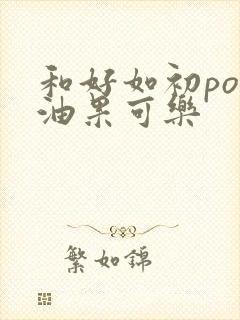 和好如初po
油果可樂
繁如錦